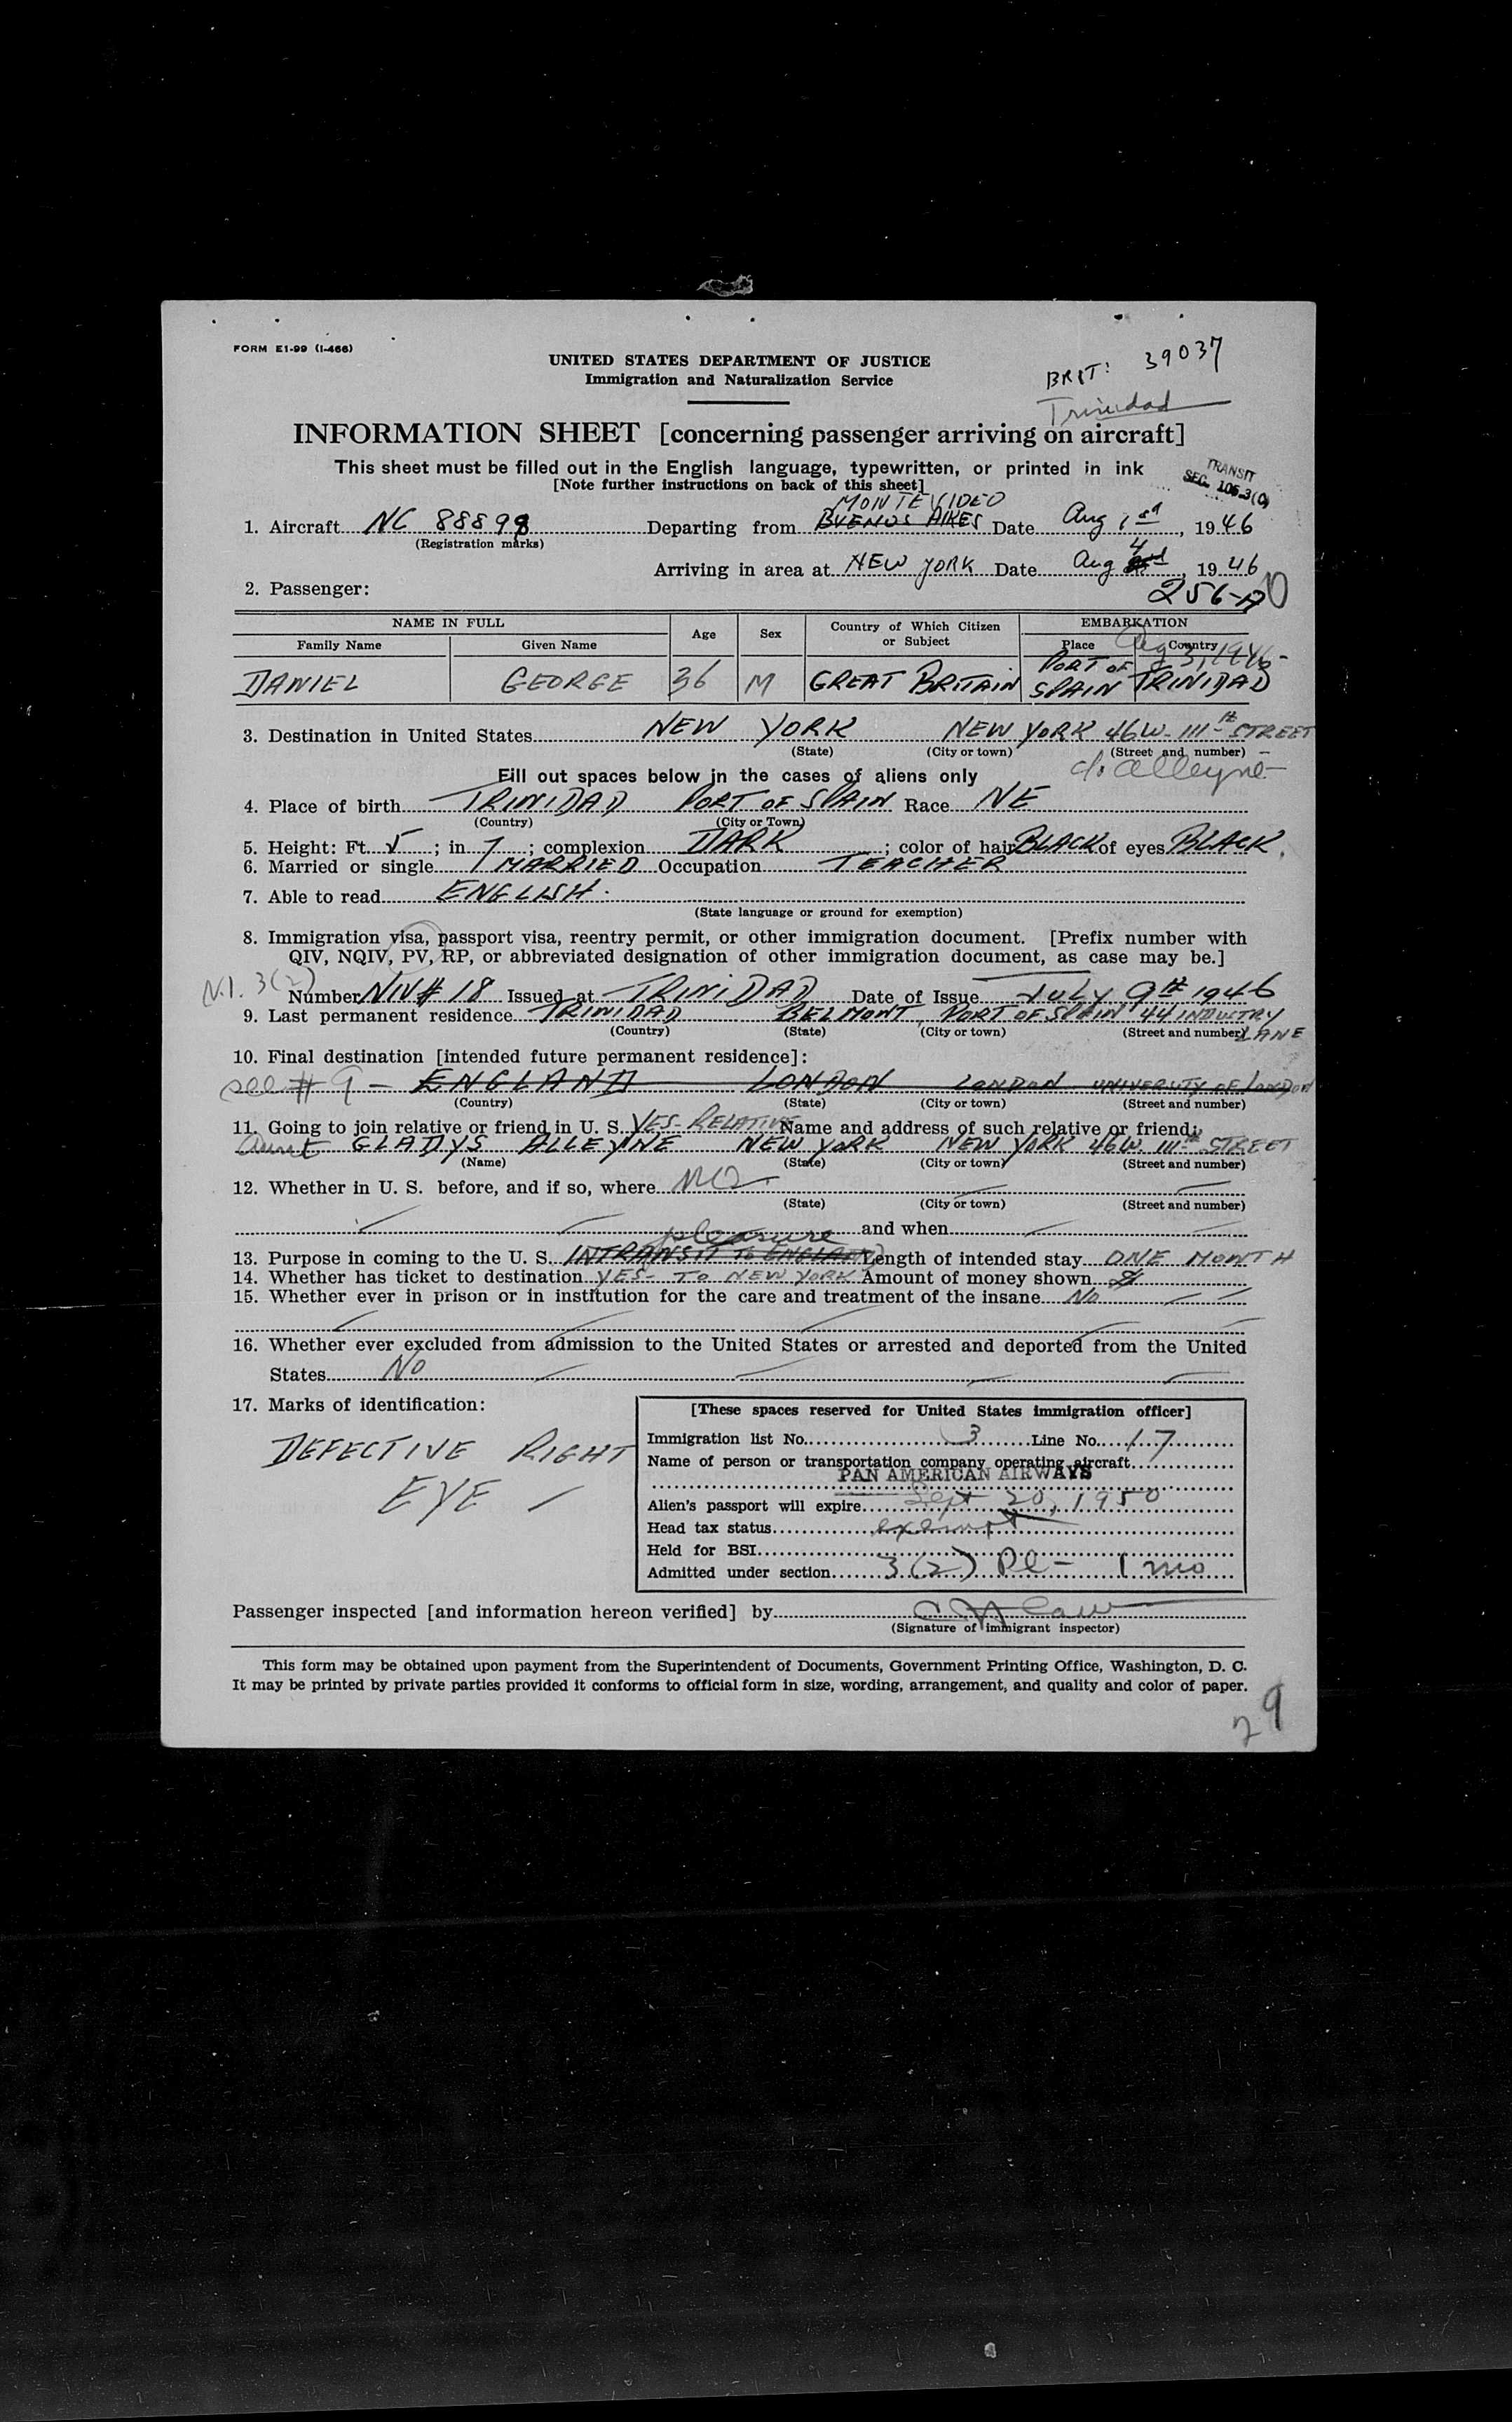 FORM E1-99 (I-466)
UNITED STATES DEPARTMENT OF JUSTICE
Immigration and Naturalization Service
BRIT: 39037
Trinidad
INFORMATION SHEET [concerning passenger arriving on aircraft]
This sheet must be filled out in the English language, typewritten, or printed in ink
[Note further instructions on back of this sheet]
TRANSIT
SEC. 105.3(C)
MONTEVIDEO
1. Aircraft NC 88898 Departing from BUENOS AIRES Date Aug 1st, 1946
(Registration marks)
Arriving in area at NEW YORK Date Aug 4, 1946
2. Passenger:
256-A
NAME IN FULL Age Sex Country of Which Citizen or Subject EMBARKATION
Family Name Given Name Place Country
Aug 3, 1946-
DANIEL GEORGE 36 M GREAT BRITAIN PORT OF SPAIN TRINIDAD
3. Destination in United States NEW YORK NEW YORK 46 W. 111th STREET
(State) (City or town) (Street and number)
c/o Alleyne
Fill out spaces below in the cases of aliens only
4. Place of birth TRINIDAD PORT OF SPAIN Race NE
(Country) (City or Town)
5. Height: Ft. 5; in 7; complexion DARK; color of hair BLACK of eyes BLACK.
6. Married or single MARRIED Occupation TEACHER
7. Able to read ENGLISH.
(State language or ground for exemption)
8. Immigration visa, passport visa, reentry permit, or other immigration document. [Prefix number with
QIV, NQIV, PV, RP, or abbreviated designation of other immigration document, as case may be.]
N.I. 3(2)
Number NIV# 18 Issued at TRINIDAD Date of Issue JULY 9th 1946
9. Last permanent residence TRINIDAD BELMONT, PORT OF SPAIN 44 INDUSTRY LANE
(Country) (State) (City or town) (Street and number)
10. Final destination [intended future permanent residence]:
see # 9 - ENGLAND LONDON LONDON UNIVERSITY OF LONDON
(Country) (State) (City or town) (Street and number)
11. Going to join relative or friend in U. S. YES-RELATIVE Name and address of such relative or friend:
Aunt GLADYS ALLEYNE NEW YORK NEW YORK 46 W. 111th STREET
(Name) (State) (City or town) (Street and number)
12. Whether in U. S. before, and if so, where NO
(State) (City or town) (Street and number)
and when
pleasure
13. Purpose in coming to the U. S. INTRANSIT TO ENGLAND Length of intended stay ONE MONTH
14. Whether has ticket to destination YES- TO NEW YORK Amount of money shown
15. Whether ever in prison or in institution for the care and treatment of the insane No
16. Whether ever excluded from admission to the United States or arrested and deported from the United
States NO
17. Marks of identification:
DEFECTIVE RIGHT
EYE
[These spaces reserved for United States immigration officer]
Immigration list No. 3 Line No. 17
Name of person or transportation company operating aircraft
PAN AMERICAN AIRWAYS
Alien's passport will expire Sept 20, 1950
Head tax status exempt
Held for BSI
Admitted under section 3(2) Pl - 1 mo
Passenger inspected [and information hereon verified] by
(Signature of immigrant inspector)
This form may be obtained upon payment from the Superintendent of Documents, Government Printing Office, Washington, D. C.
It may be printed by private parties provided it conforms to official form in size, wording, arrangement, and quality and color of paper.
29